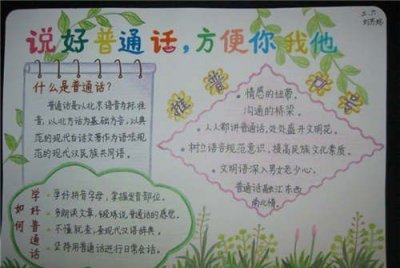 说好普通话，方便你我他
二、六
什么是普通话？
普通话是以北京语音为标准
音，以北方话为基础方言，以典
范的现代白话文著作为语法规
范的现代汉民族共同语。
推普口号
情感的纽带，
沟通的桥梁。
人人都讲普通话，处处盛开文明花。
树立语言规范意识，提高民族文化素质。
文明语深入男女老少心，
普通话融汇东西
南北情。
如何学好普通话
学好拼音字母，掌握发音部位。
多朗读文章，锻炼说普通话的语感。
不懂就查，查现代汉语辞典。
坚持用普通话进行日常会话。